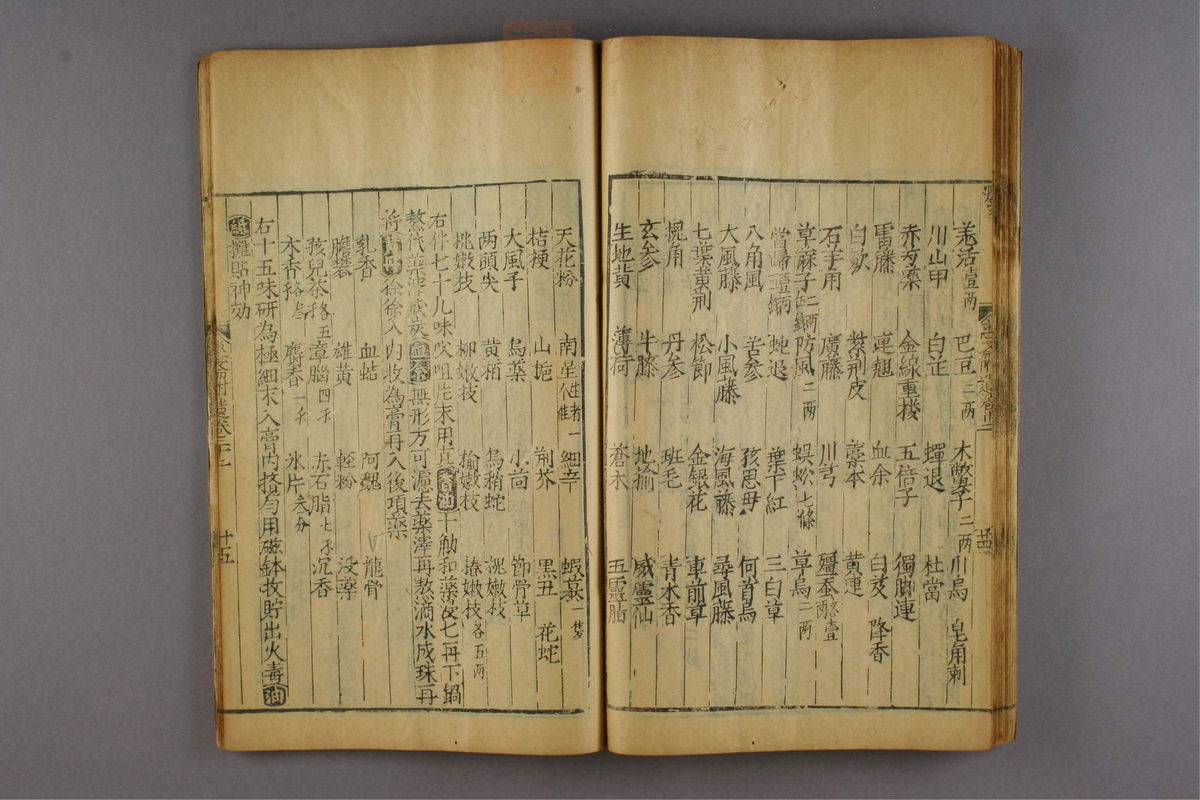 羌活壹两 巴豆二两 木虌子二两 川烏 皂角刺
川山甲 白芷 蟬退 杜當
赤芍藥 金線重楼 五倍子 獨脚連
雷藤 連翹 血余 白芨 降香
白歛 紫荆皮 藁本 黄連
石羊角 廣藤 川芎 殭蚕各壹两
草蔴子二两 防風二两 蜈蚣七條 草烏二两
當歸 蛇退 葉下紅 三白草
八角風 苦参 孩思母 何首烏
大風藤 小風藤 海風藤 尋風藤
七葉黄荆 松節 金銀花 車前草
槐角 丹参 班毛 青木香
玄参 牛膝 地榆 威靈仙
生地黄 薄荷 蒼木 五靈脂
天花粉 南星 細辛 蝦蟇一隻
桔梗 山梔 荆芥 黑丑 花蛇
大風子 烏藥 小茴 節骨草
两頭尖 黄栢 烏稍蛇 槐嫩枝
桃嫩枝 柳嫩枝 榆嫩枝 椿嫩枝各五两
右件七十九味㕮咀片末用真 油十觔和藥浸七日再下鍋
熬伐藥滓成炭 無形方可濾去藥滓再熬滴水成珠再
将 徐徐入内收為膏再入後項藥
乳香 血蛣 阿魏 龍骨
膽礬 雄黄 輕粉 没藥
孩兒茶各五 潭腦四不 赤石脂七不 沉香
木香各 麝香一 氷片叁分
右十五味研為極細末入膏内擠匀用磁鉢收貯出火毒油
紙攤貼神効
十五